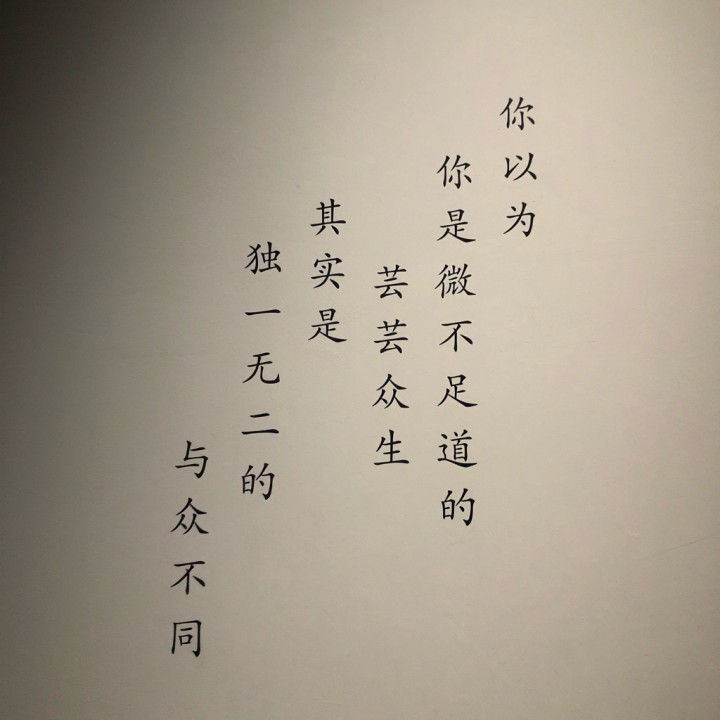 你以为
你是微不足道的
芸芸众生
其实是
独一无二的
与众不同